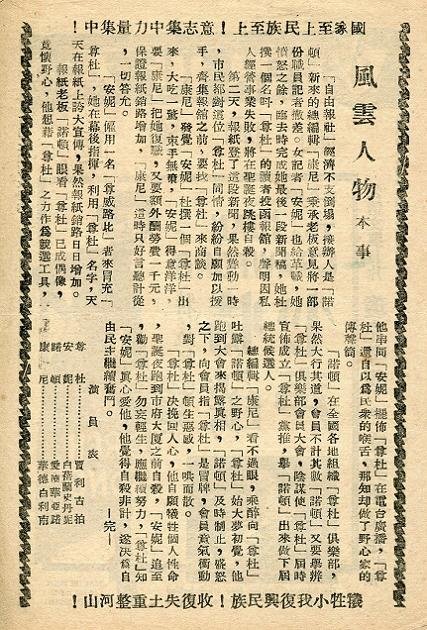 國家至上民族至上！意志集中力量集中！
風雲人物 本事
「自由報社」經濟不支倒塌，接辦人是「諾
頓」新來的總編輯「康尼」秉承老板意見將一部
份職員記者撤差。女記者「安妮」也給革職，她
憤怒之餘，臨去時完成她最後一段新聞稿，她杜
撰一個名叫「尊杜」的讀者投函報館，聲明因私
人經營事業失敗，將在聖誕夜跳樓自殺。
第二天，報紙登了這段新聞，果然聳動一時
，市民都對這位「尊杜」同情，紛紛自願加以援
手，齊集報館之前，要找「尊杜」來商談。
「康尼」發覺「安妮」杜撰一個「尊杜」出
來，大吃一驚，束手無策，「安妮」得意洋洋，
要「康尼」把她復職，又要額外酬勞費一千元，
保證報紙銷路增加。「康尼」這時只好言聽計從
，一切答允。
「安妮」僱用一名「尊威路比」者來冒充「
尊杜」，她在幕後指揮，利用「尊杜」名字，天
天在報紙上誇大宣傳，果然報紙銷路日日增加。
報紙老板「諾頓」眼看「尊杜」已成偶像，
竟懷野心，他想藉「尊杜」之力作為競選工具，
他串同「安妮」擺佈「尊杜」在電台廣播，「尊
杜」還自以為是民衆的喉舌，那知却做了野心家的
傳聲筒。
「諾頓」在全國各地組織「尊杜」俱樂部，
果然大行其道，會員不計其數「諾頓」又要舉辦
「尊杜」俱樂部會員大會，陰謀使「尊杜」屆時
宣佈成立「尊杜」黨推，舉「諾頓」出來做下屆
總統候選人。
總編輯「康尼」看不過眼，乘醉向「尊杜」
吐露「諾頓」之野心，「尊杜」始大夢初覺，他
跑到大會來揭露真相，「諾頓」及時制止，盛怒
之下，向會員指「尊杜」是冒牌，會員意氣衝動
，對「尊杜」頓生惡感，一哄而散。
「尊杜」決挽回人心，他自願犧牲個人性命
聖誕夜跑到市府大厦之前自殺，「安妮」追至
，勸「尊杜」勿妄輕生，應繼續努力，「尊杜」知
「安妮」真心愛他，他覺得自殺非計，遂決爲自
由民主繼續奮鬥。 —完—
演員表
尊杜……賈利古柏
安妮……白蓓蘭史丹妮
諾頓……愛華亞諾
康尼……華德白利南
犧牲小我復興民族！收復失土重整河山！